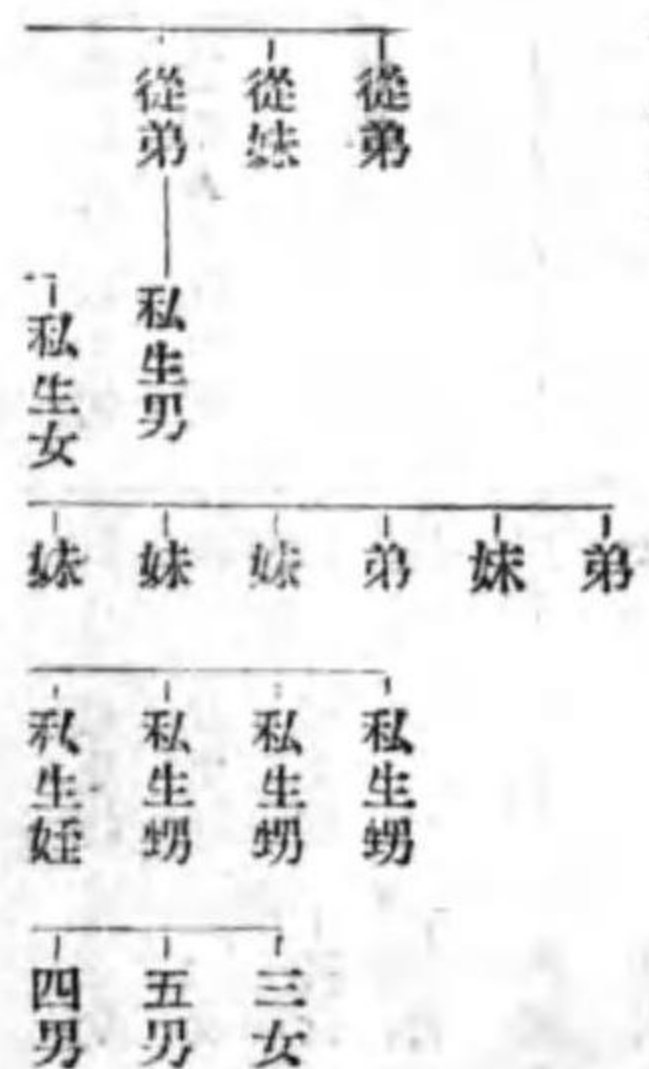 從弟
從妹
從弟
私生男
私生女
弟
妹
弟
妹
妹
妹
私生甥
私生甥
私生甥
私生姪
三女
五男
四男